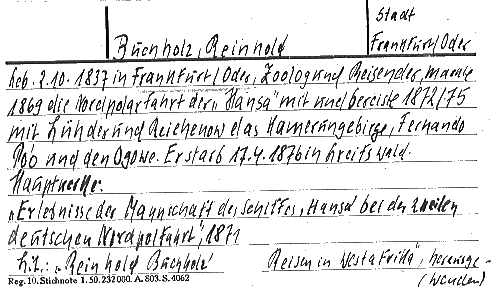 Stadt
Buchholz, Reinhold Frankfurt/Oder
geb. 2.10. 1837 in Frankfurt/Oder, Zoologund Reisender, machte
1869 die Nordpolarfahrt der „Hansa" mit und bereiste 1872/75
mit Lühder und Reichenow das Kamerungebirge, Fernando
Póo und den Ogowe. Er starb 17.4. 1876 in Greifswald.
Hauptwerke:
„Erlebnisse der Mannschaft des Schiffes „Hansa" bei der zweiten
deutschen Nordpolfahrt", 1871
Lit.: „Reinhold Buchholz' Reisen in Westafrika", herausge-
Reg. 10. Stichnote 1. 50. 232000. A. 803. S. 4062